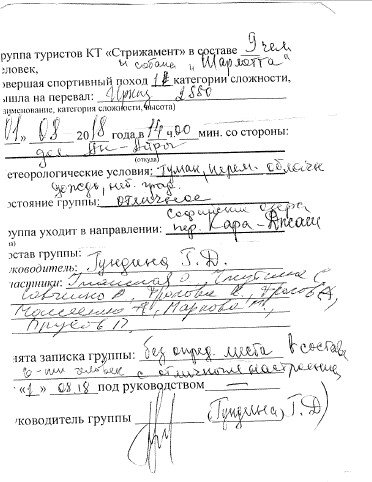 руппа туристов КТ «Стрижамент» в составе 9 чел
еловек, и собака „Шарлотта"
овершая спортивный поход 1 категории сложности,
ышла на перевал: Иркиз 2880
аименование, категория сложности, высота)
01» 08 2018 года в 14 ч.00 мин. со стороны:
дол.
(откуда)
етеорологические условия: Туман, перем. облачн
дождь, неб. град.
остояние группы: отличное
руппа уходит в направлении: Софийские озера,
пер. Кара-Джаш
а)
остав группы:
уководитель: Тундина Т. Д.
частники:
Савченко Фролова Фролов А,
Моисеенко А, Маркова
нята записка группы: без опред. листа в составе
6-ти человек с отличным настроением
«1» 08.18 под руководством —
уководитель группы (Тундина, Т. Д)